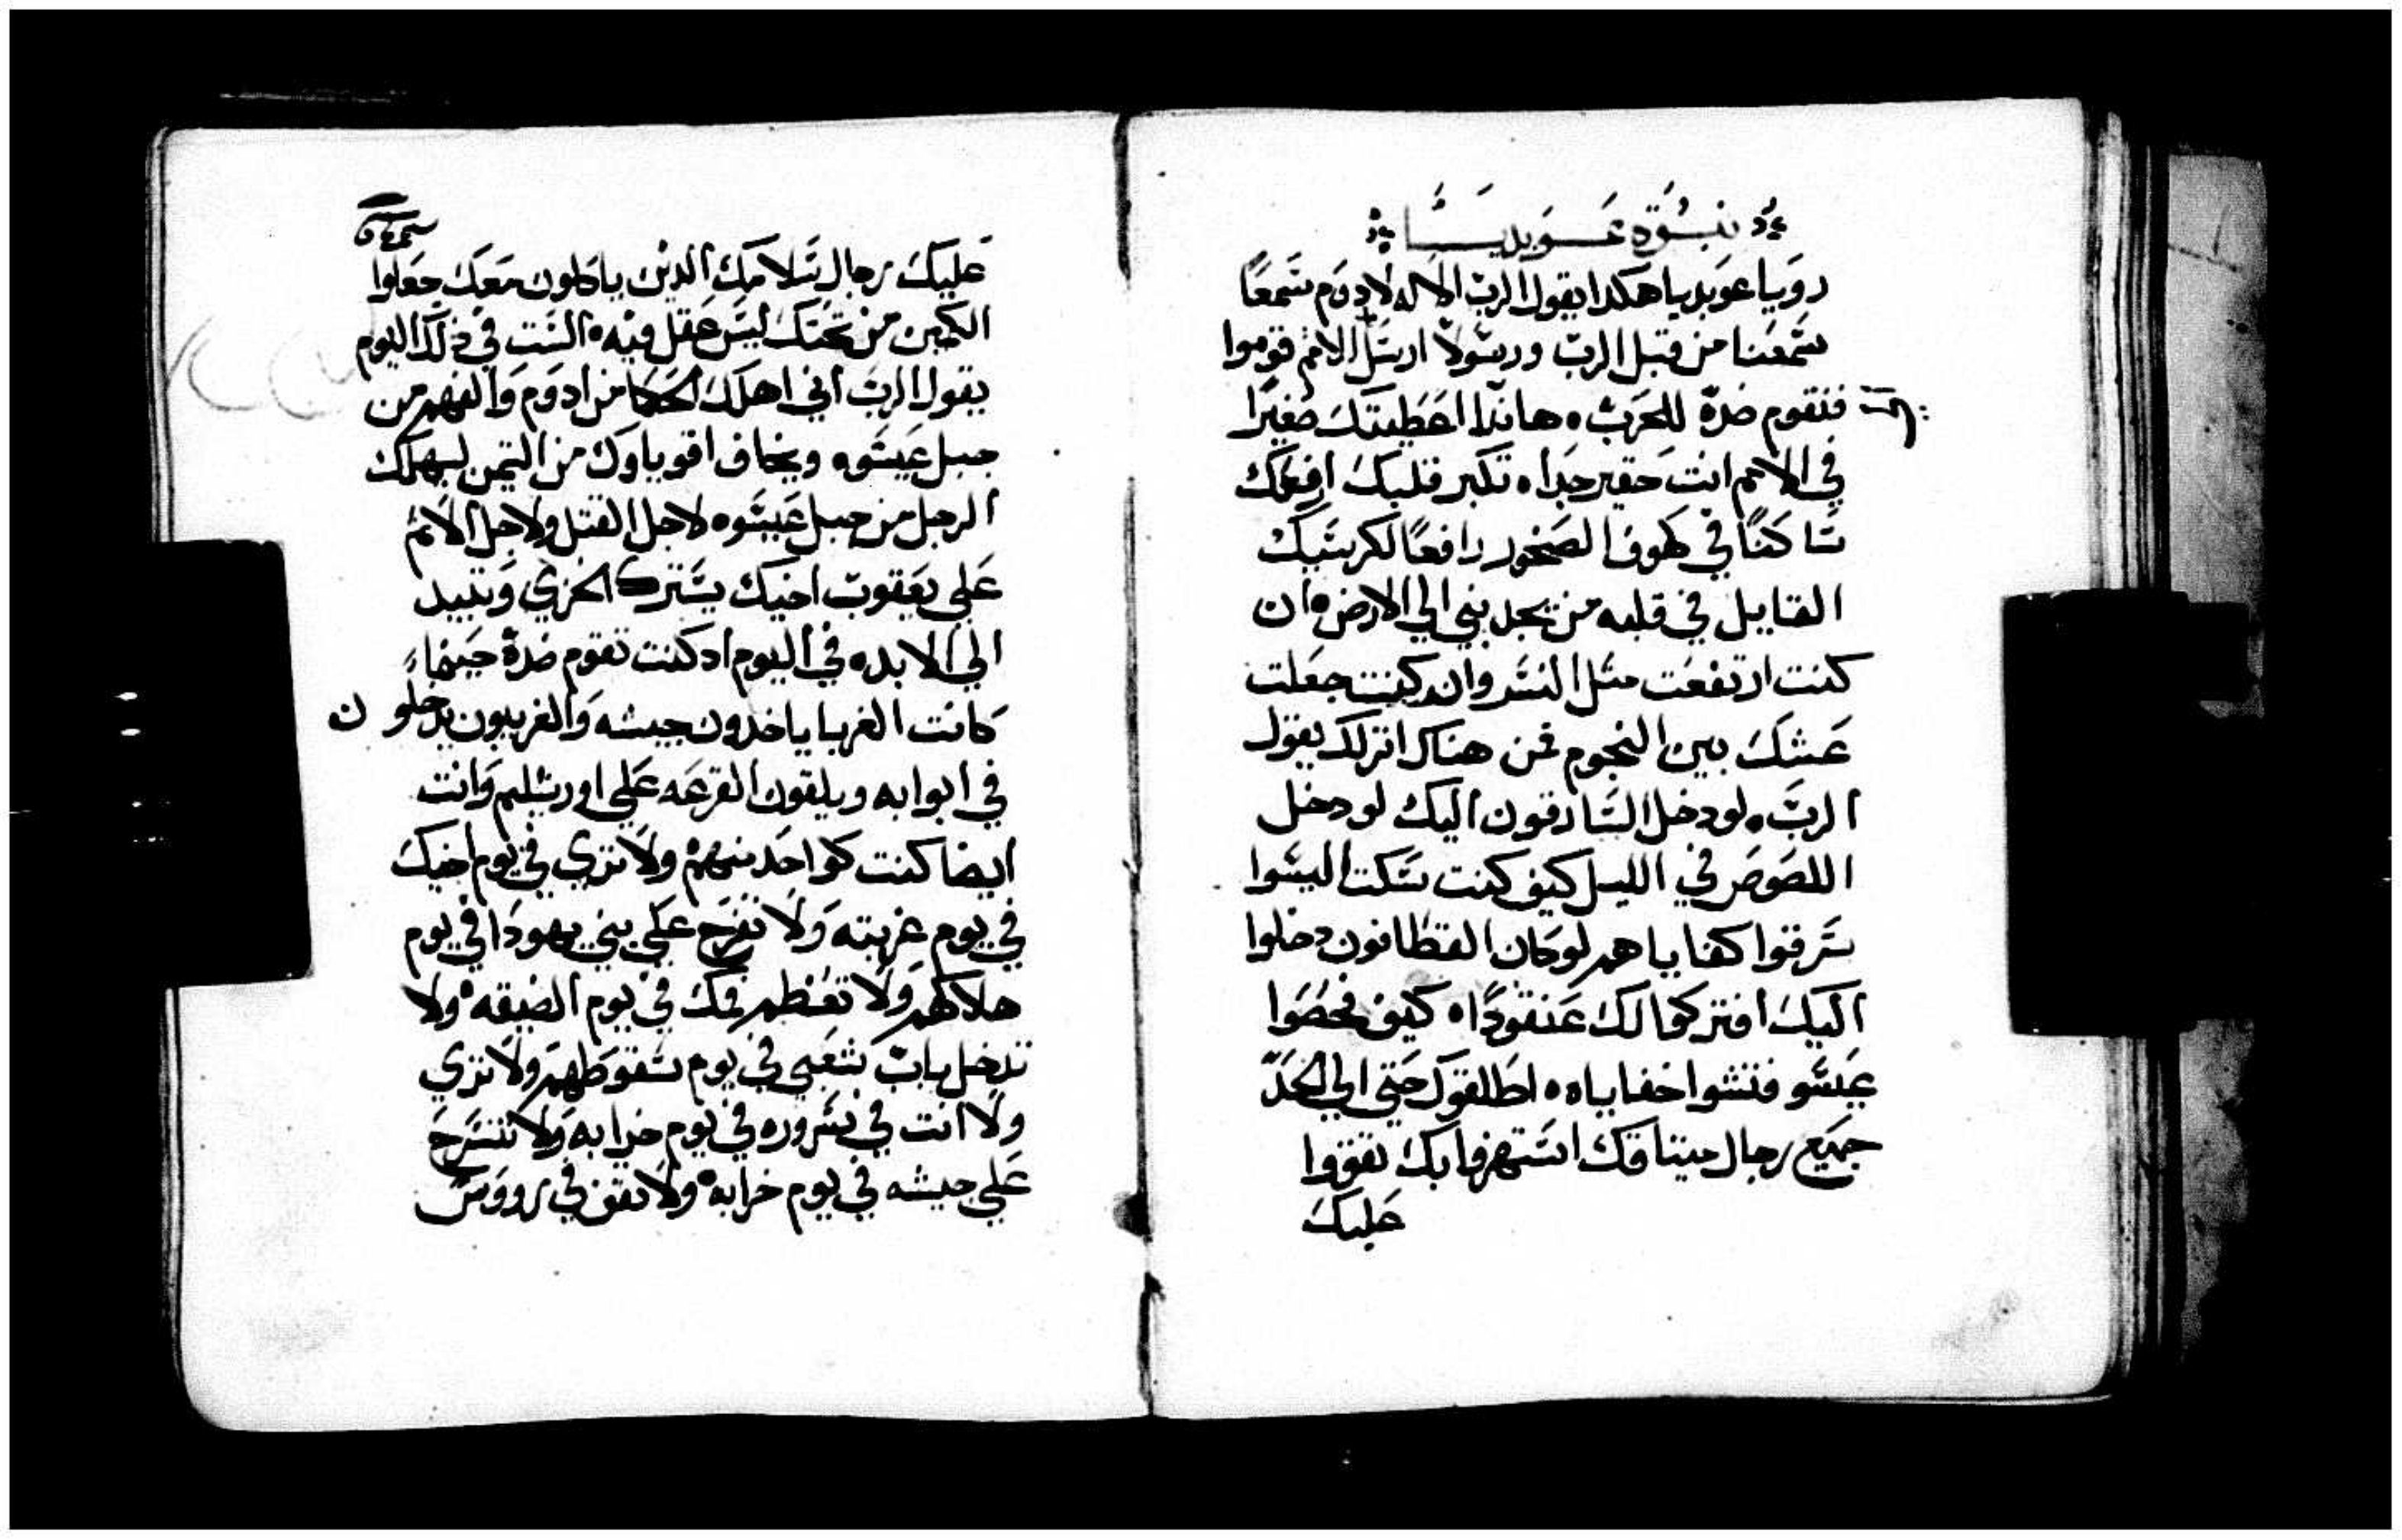 نبوة عوبديا
رويا عوبديا هكدا يقول الرب الاله لادوم سَمعًا
سمعنا من قبل الرب ورسولا ارسل الامم قوموا
فنقوم ضدة للحرب ٥ هاندا اعطيتك صغيرا
في الامم انت حقير جدا ٥ تكبر قلبك افعمك
ساكنًا في كهوف الصخور رافعًا لكرسيك
القايل في قلبه من يجدبني الي الارض ٥ ان
كنت ارتفعت مثل النسر وان كنت جعلت
عشك بين النجوم فمن هناك انزلك يقول
الرب ٥ لو دخل السارقون اليك لو دخل
اللصوص في الليل كيف كنت سكت اليسوا
سرقوا كفاياهم لو كان القطافون دخلوا
اليك افتركوا لك عنقودًا ٥ كيف فحصوا
عيسو فتشوا خفاياه ٥ اطلقوك حتي الي الحد
جميع رجال ميتاقك استهزوا بك تقووا
عليك
عليك رجال سلامك الدين ياكلون معك جعلوا
الكمين من تحتك ليس عقل فيه ٥ الست في ذلك اليوم
يقول الرب اني اهلك الحكما من ادوم والفهم من
جبل عيسو ٥ ويخاف اقوياوك من التيمن ليهلك
الرجل من جبل عيسو ٥ لاجل القتل ولاجل الاثم
علي يعقوب اخيك يسترك الخزي وتبيد
الي الابد ٥ في اليوم اد كنت تقوم ضدة حينما
كانت الغربا ياخدون جيشه والغريبون يدخلون
في ابوابه ويلقون القرعه علي اورشليم وانت
ايضا كنت كواحد منهم ٥ ولا تزي في يوم اخيك
في يوم غربته ولا تفرح علي بني يهودا في يوم
هلاكهم ولا تعظم فمك في يوم الضيقه ٥ ولا
تدخل باب شعبي في يوم سقوطهم ولا تزي
ولا انت في شروره في يوم خرابه ولا تتسرح
علي جيشه في يوم خرابه ٥ ولا تقف في رووس